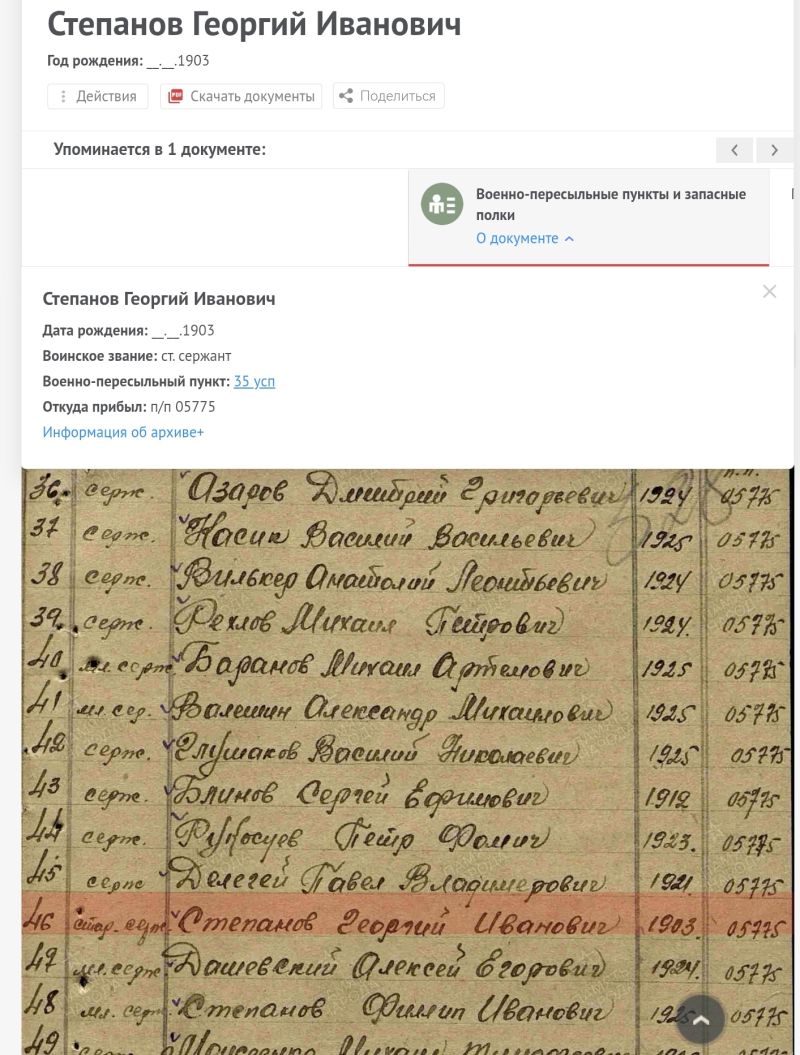 Степанов Георгий Иванович
Год рождения: __.__.1903
Действия
Скачать документы
Поделиться
Упоминается в 1 документе:
Военно-пересыльные пункты и запасные
полки
О документе
Степанов Георгий Иванович
Дата рождения: __.__.1903
Воинское звание: ст. сержант
Военно-пересыльный пункт: 35 усп
Откуда прибыл: п/п 05775
Информация об архиве+
36. серж. Азаров Дмитрий Григорьевич 1924 05775
37 серж. Насик Василий Васильевич 1925 05775
38 серж. Вилькер Анатолий Леонтьевич 1924 05775
39. серж. Рехлов Михаил Петрович 1924. 05775
40 мл. серж Баранов Михаил Артемович 1925 05775
41 мл. сер. Валешин Александр Михаилович 1925 05775
42 серж. Глушаков Василий Николаевич 1925 05775
43 серж. Блинов Сергей Ефимович 1912 05775
44 серж. Петр Фомич 1923. 05775
45 серж Делегей Павел Владимерович 1921. 05775
46 стар. серж Степанов Георгий Иванович 1903. 05775
47 мл. серж Дашевский Алексей Егорович 1924. 05775
48 мл. серж Степанов Филип Иванович 05775
49 серж Михаил